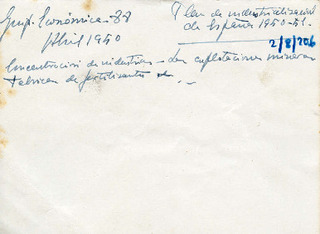 Grup. Económica - 88
Abril 1950
Plan de industrialización
de España 1950-51.
2/8/206
Concentración de industrias - Las explotaciones mineras
Fábricas de fertilizantes